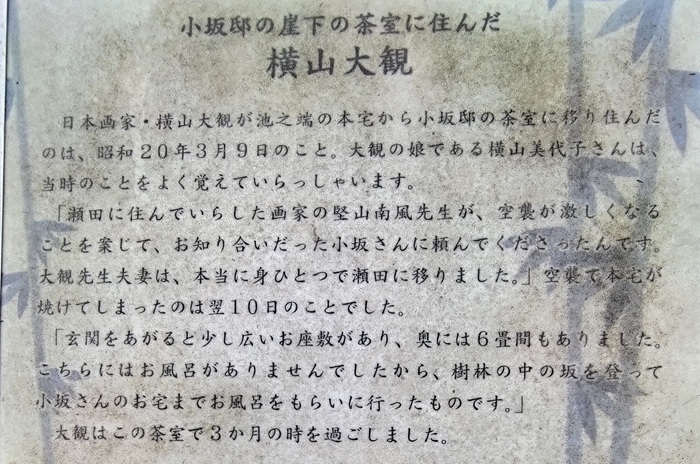 小坂邸の崖下の茶室に住んだ
横山大観
日本画家・横山大観が池之端の本宅から小坂邸の茶室に移り住んだ
のは、昭和20年3月9日のこと。大観の娘である横山美代子さんは、
当時のことをよく覚えていらっしゃいます。
「瀬田に住んでいらした画家の堅山南風先生が、空襲が激しくなる
ことを案じて、お知り合いだった小坂さんに頼んでくださったんです。
大観先生夫妻は、本当に身ひとつで瀬田に移りました。」空襲で本宅が
焼けてしまったのは翌10日のことでした。
「玄関をあがると少し広いお座敷があり、奥には6畳間もありました。
こちらにはお風呂がありませんでしたから、樹林の中の坂を登って
小坂さんのお宅までお風呂をもらいに行ったものです。」
大観はこの茶室で3か月の時を過ごしました。